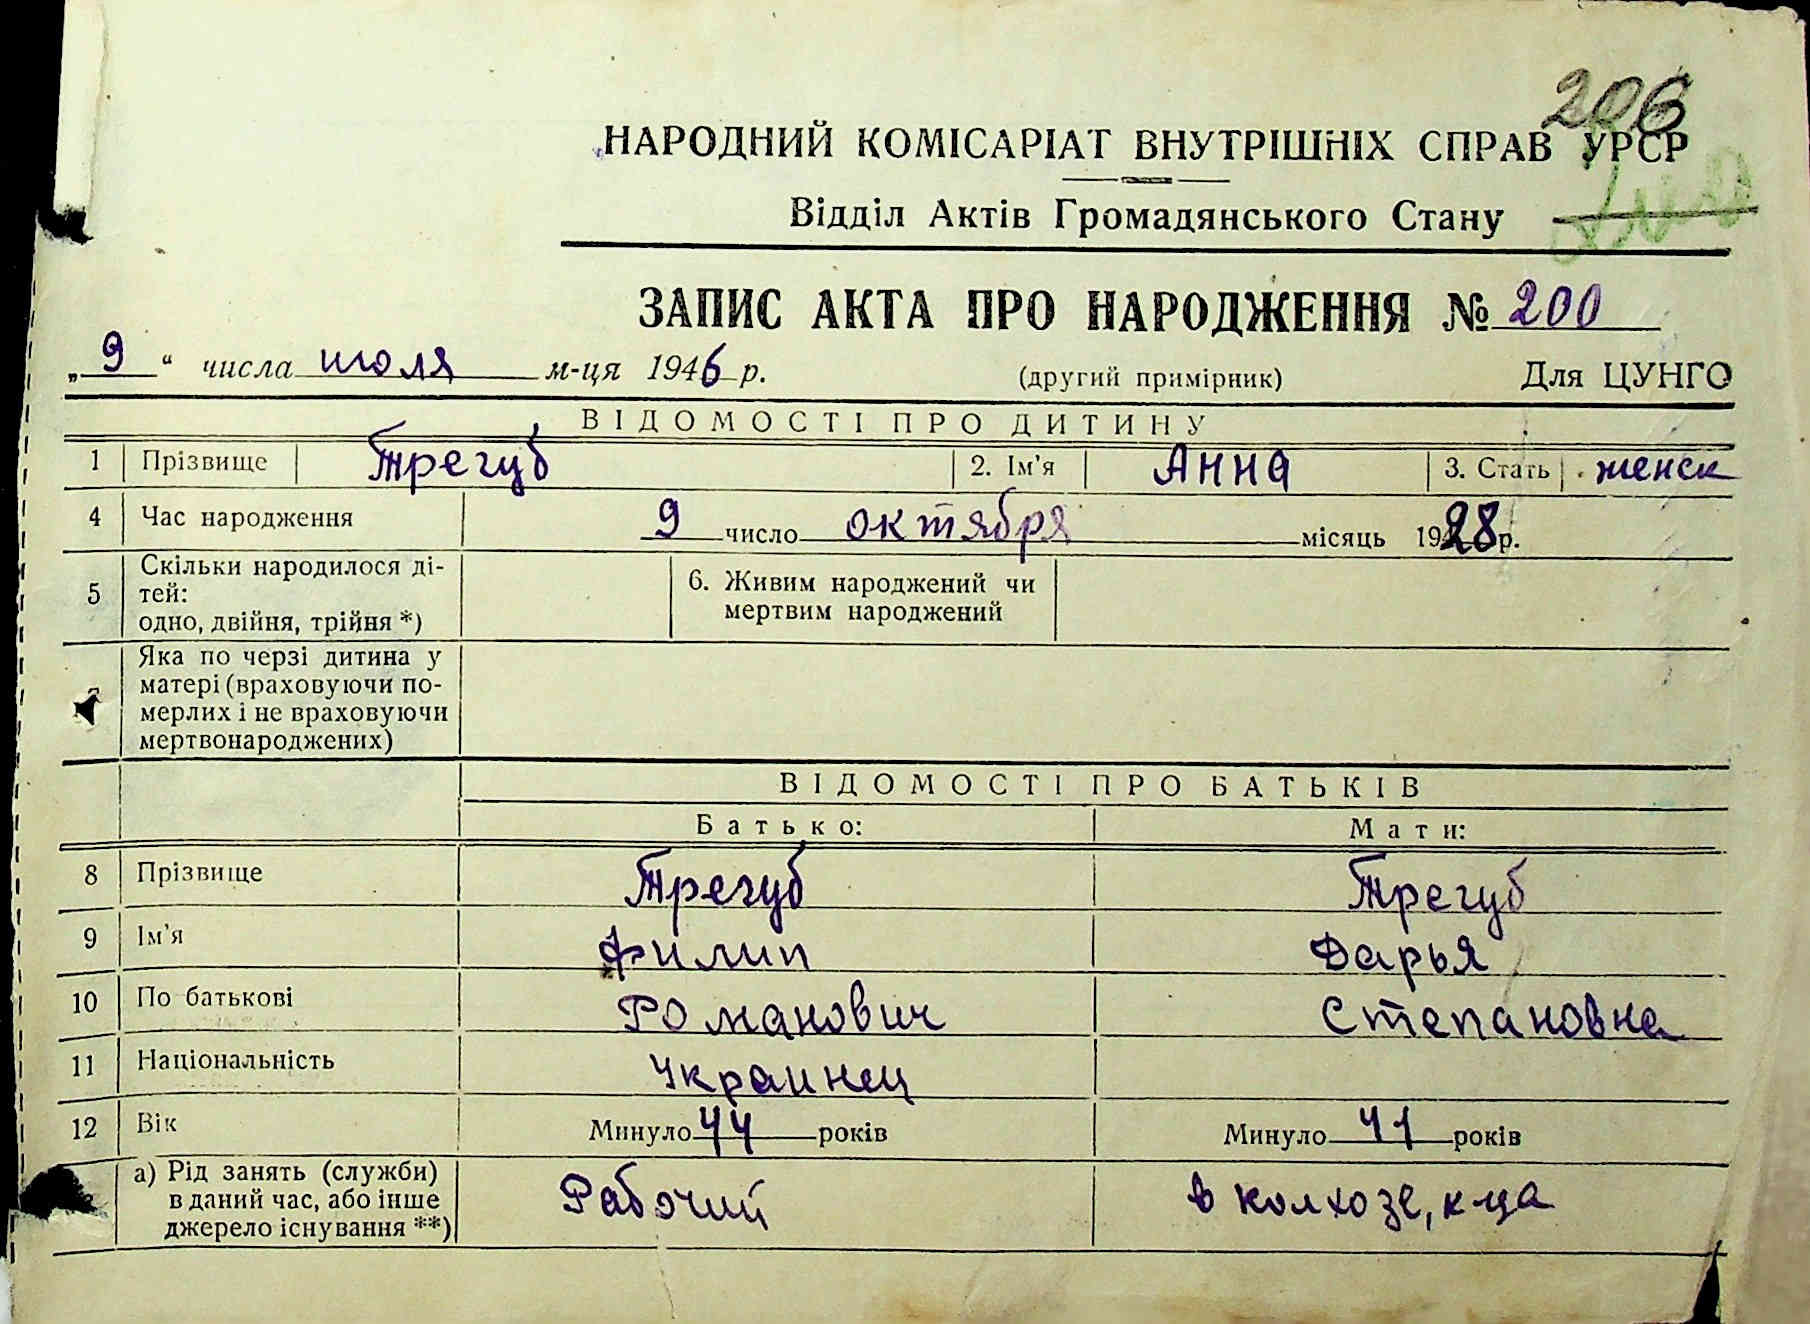 206
НАРОДНИЙ КОМІСАРІАТ ВНУТРІШНІХ СПРАВ УРСР
Відділ Актів Громадянського Стану
ЗАПИС АКТА ПРО НАРОДЖЕННЯ № 200
„9“ числа июля м-ця 1946 р. (другий примірник) Для ЦУНГО
ВІДОМОСТІ ПРО ДИТИНУ
1 Прізвище Трегуб 2. Ім'я Анна 3. Стать женск
4 Час народження 9 число октября місяць 1928 р.
5 Скільки народилося ді-
тей:
одно, двійня, трійня *)
6. Живим народжений чи
мертвим народжений
Яка по черзі дитина у
матері (враховуючи по-
мерлих і не враховуючи
мертвонароджених)
ВІДОМОСТІ ПРО БАТЬКІВ
Батько: Мати:
8 Прізвище Трегуб Трегуб
9 Ім'я Филип Дарья
10 По батькові Романович Степановна
11 Національність Украинец
12 Вік Минуло 44 років Минуло 41 років
а) Рід занять (служби)
в даний час, або інше
джерело існування **)
Рабочий в колхозе, к-ца